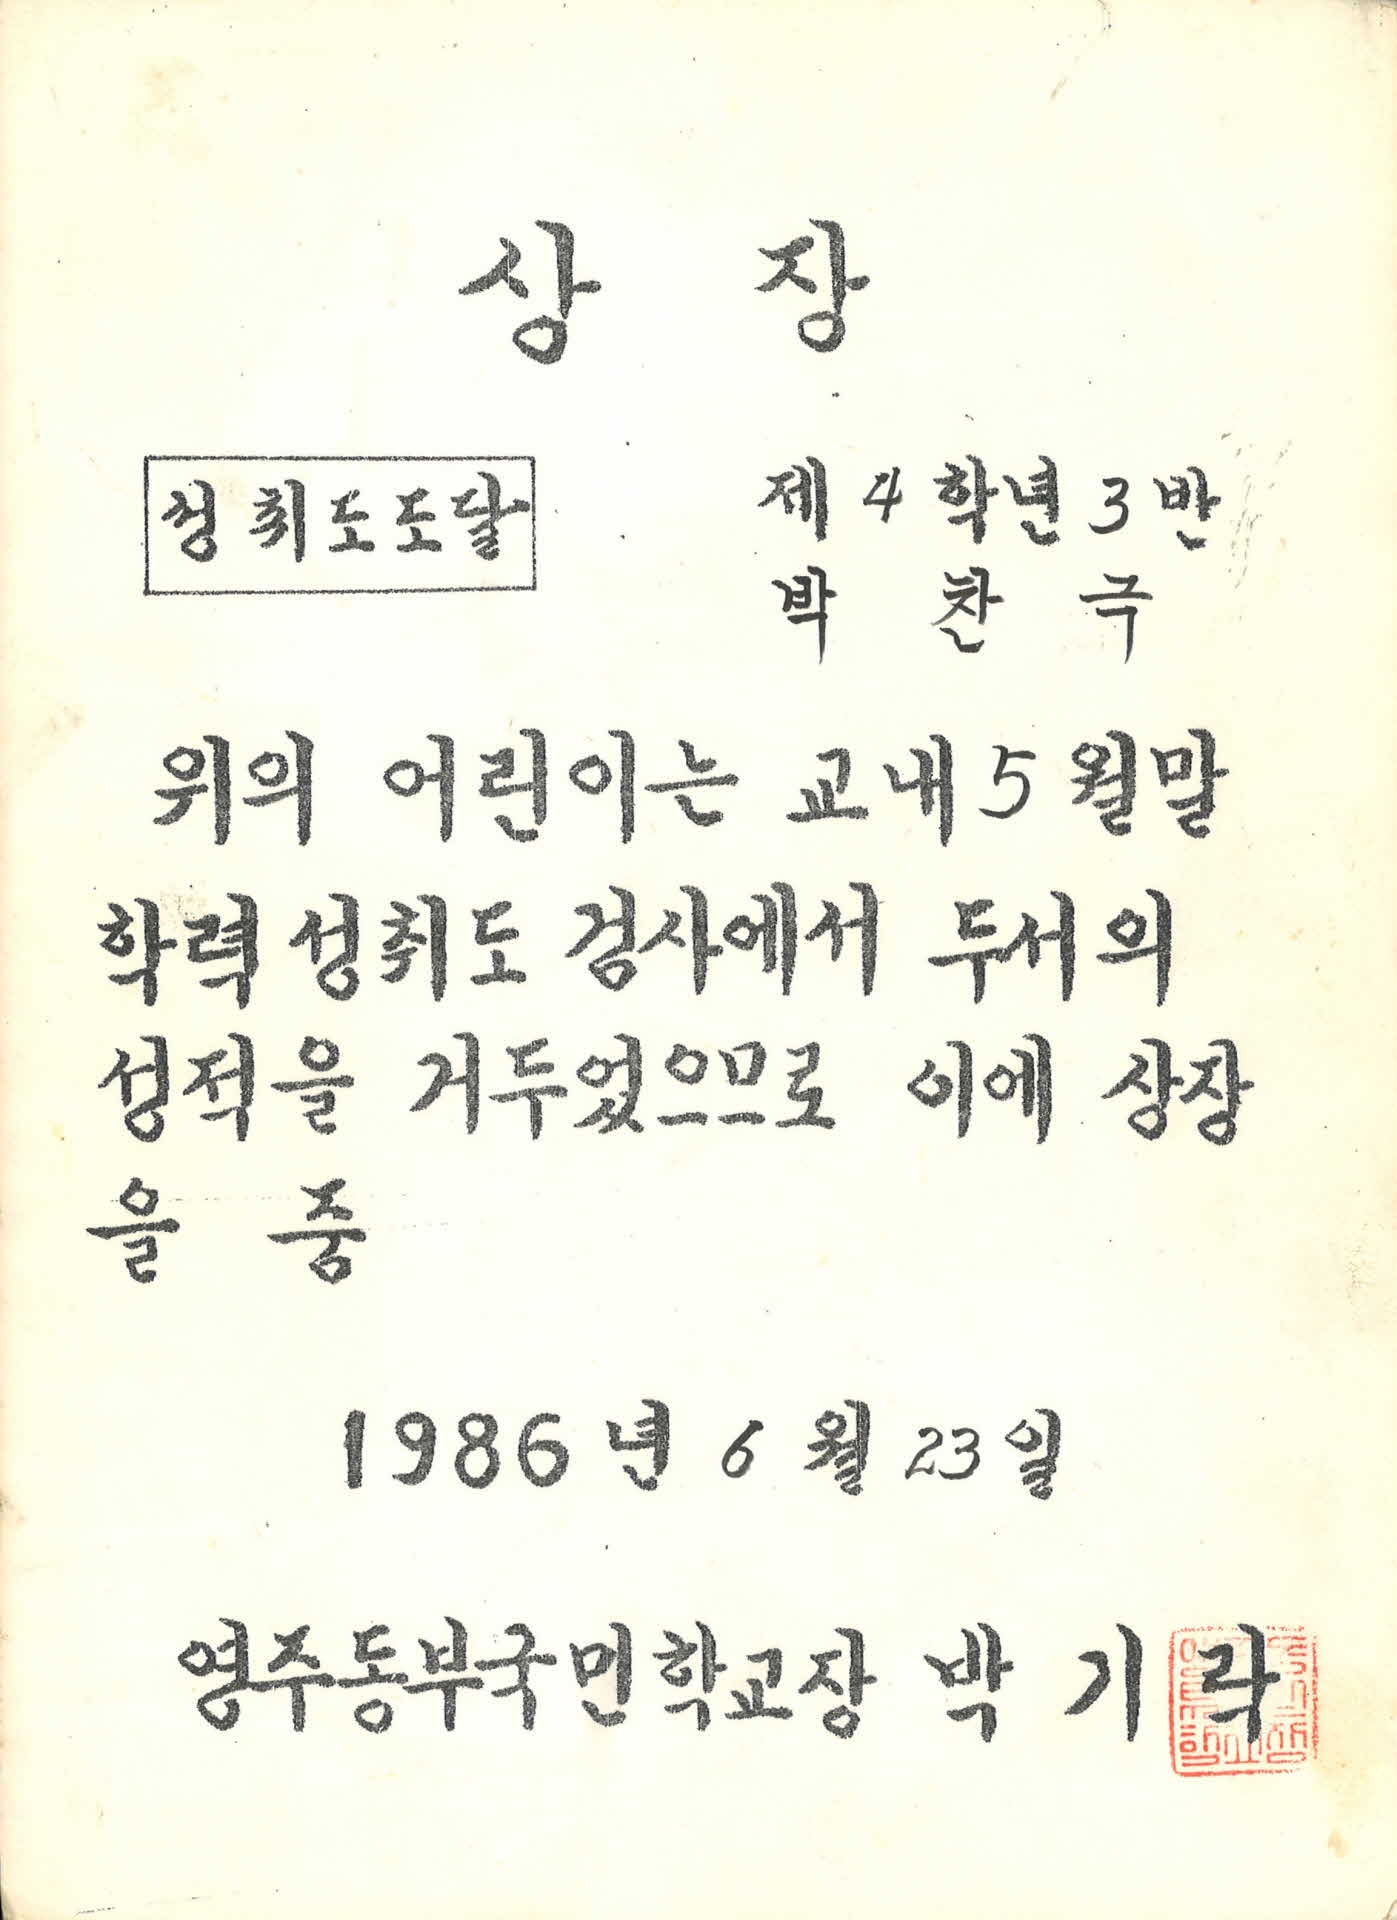 상 장
성취도도달
제 4 학년 3 반
박 찬 극
위의 어린이는 교내 5 월말
학력 성취도 검사에서 두서의
성적을 거두었으므로 이에 상장
을 줌
1986 년 6 월 23 일
영주동부국민학교장 박 기 락